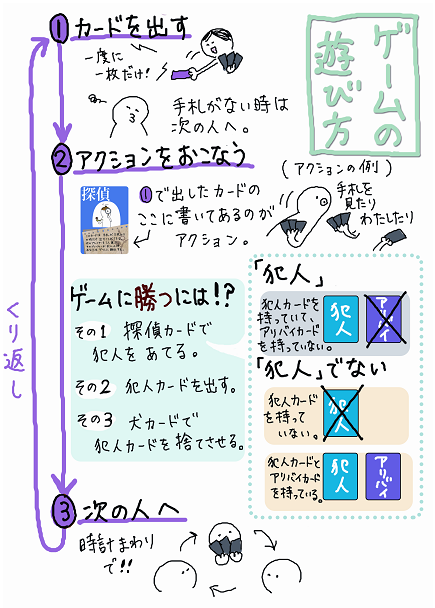 ゲームの
遊び方
① カードを出す
一度に
一枚だけ!
手札がない時は
次の人へ。
② アクションをおこなう
(アクションの例)
手札を
見たり
わたしたり
探偵
①で出したカードの
ここに書いてあるのが
アクション。
ゲームに勝つには!?
その1 探偵カードで
犯人をあてる。
その2 犯人カードを出す。
その3 犬カードで
犯人カードを捨てさせる。
「犯人」
犯人カードを
持っていて、
アリバイカード
を持っていない。
犯人
アリバイ
「犯人」でない
犯人カード
を持って
いない。
犯人
犯人カードと
アリバイカード
を持っている。
犯人
アリバイ
くり返し
③ 次の人へ
時計まわり
で!!